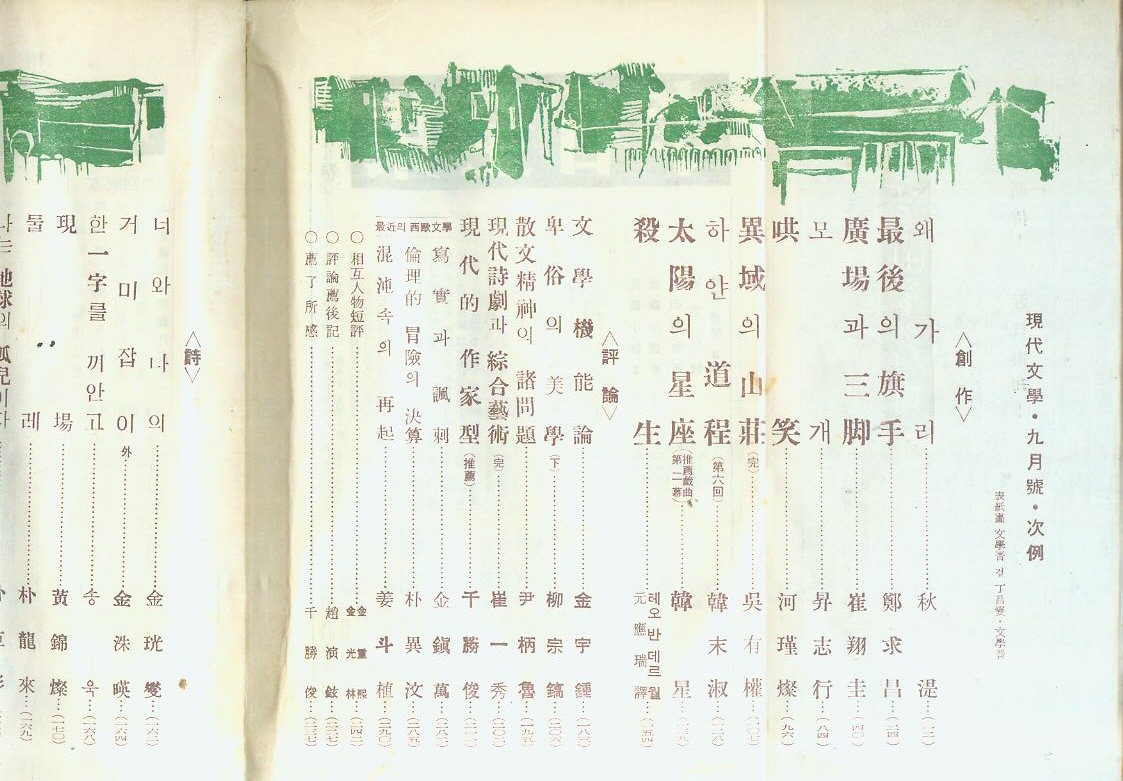 現代文學•九月號•次例
表紙畫 文學

<創作>
왜가리 秋湜 (一二)
最後의 旗手 鄭求昌 (二四)
廣場과 三脚 崔翔圭 (四〇)
모개 昇志行 (八四)
哄笑 河瑾燦 (九六)
異域의 山莊 (完) 吳有權 (一〇七)
하얀 道程 (第六回) 韓末淑 (一二八)
太陽의 星座 (推薦戱曲 第二幕) 韓星
殺生 테오 반 데르 월 元應瑞 譯 (一五四)
<評論>
文學機能論 金宇鍾 (一八二)
卑俗의 美學 (下) 柳宗鎬 (二〇六)
散文精神의 諸問題 尹柄魯 (一九五)
現代詩劇과 綜合藝術 (完) 崔一秀
現代的 作家型 (推薦) 千勝俊
最近의 西歐文學
寫實과 諷刺 金鎭萬
倫理的 冒險의 決算 朴異汶 (二八五)
混沌속의 再起 姜斗植 (二九〇)
○相互人物短評 金重熙 金光林
○評論薦後記 趙演鉉
○薦了所感 千勝俊
<詩>
너와 나의 金珖燮 (一六二)
거미잡이 外 金洙暎 (一六四)
한 一字를 껴안고 송욱 (一六八)
現場 黃錦燦 (一七〇)
둘레 朴龍來
나는 地球의 孤兒이다